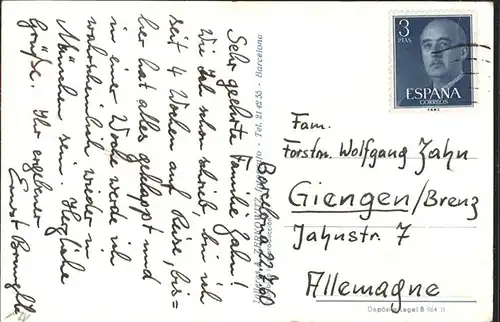 Barcelona 22.8.60
Sehr geehrte Familie Zahn!
Wie ich schon schrieb, bin ich
seit 4 Wochen auf Reise, bis=
her hat alles geklappt und
in einer Woche werde ich
wahrscheinlich wieder in
München sein. Herzliche
Grüße. Ihr ergebener
Ernst
Tel. 21 42 55 - Barcelona
3
PTAS
ESPAÑA
CORREOS
Fam.
Forstm. Wolfgang Zahn
Giengen/Brenz
Jahnstr. 7
Allemagne
Depósito Legal B 964